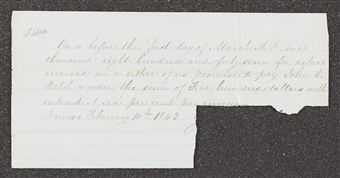 On or before the first day of March A.D. one
thousand eight hundred and forty seven for value
received we or either of us promise to pay John
Welch or order the sum of Five hundred dollars with
interest at six per cent per annum
February 10th 1843